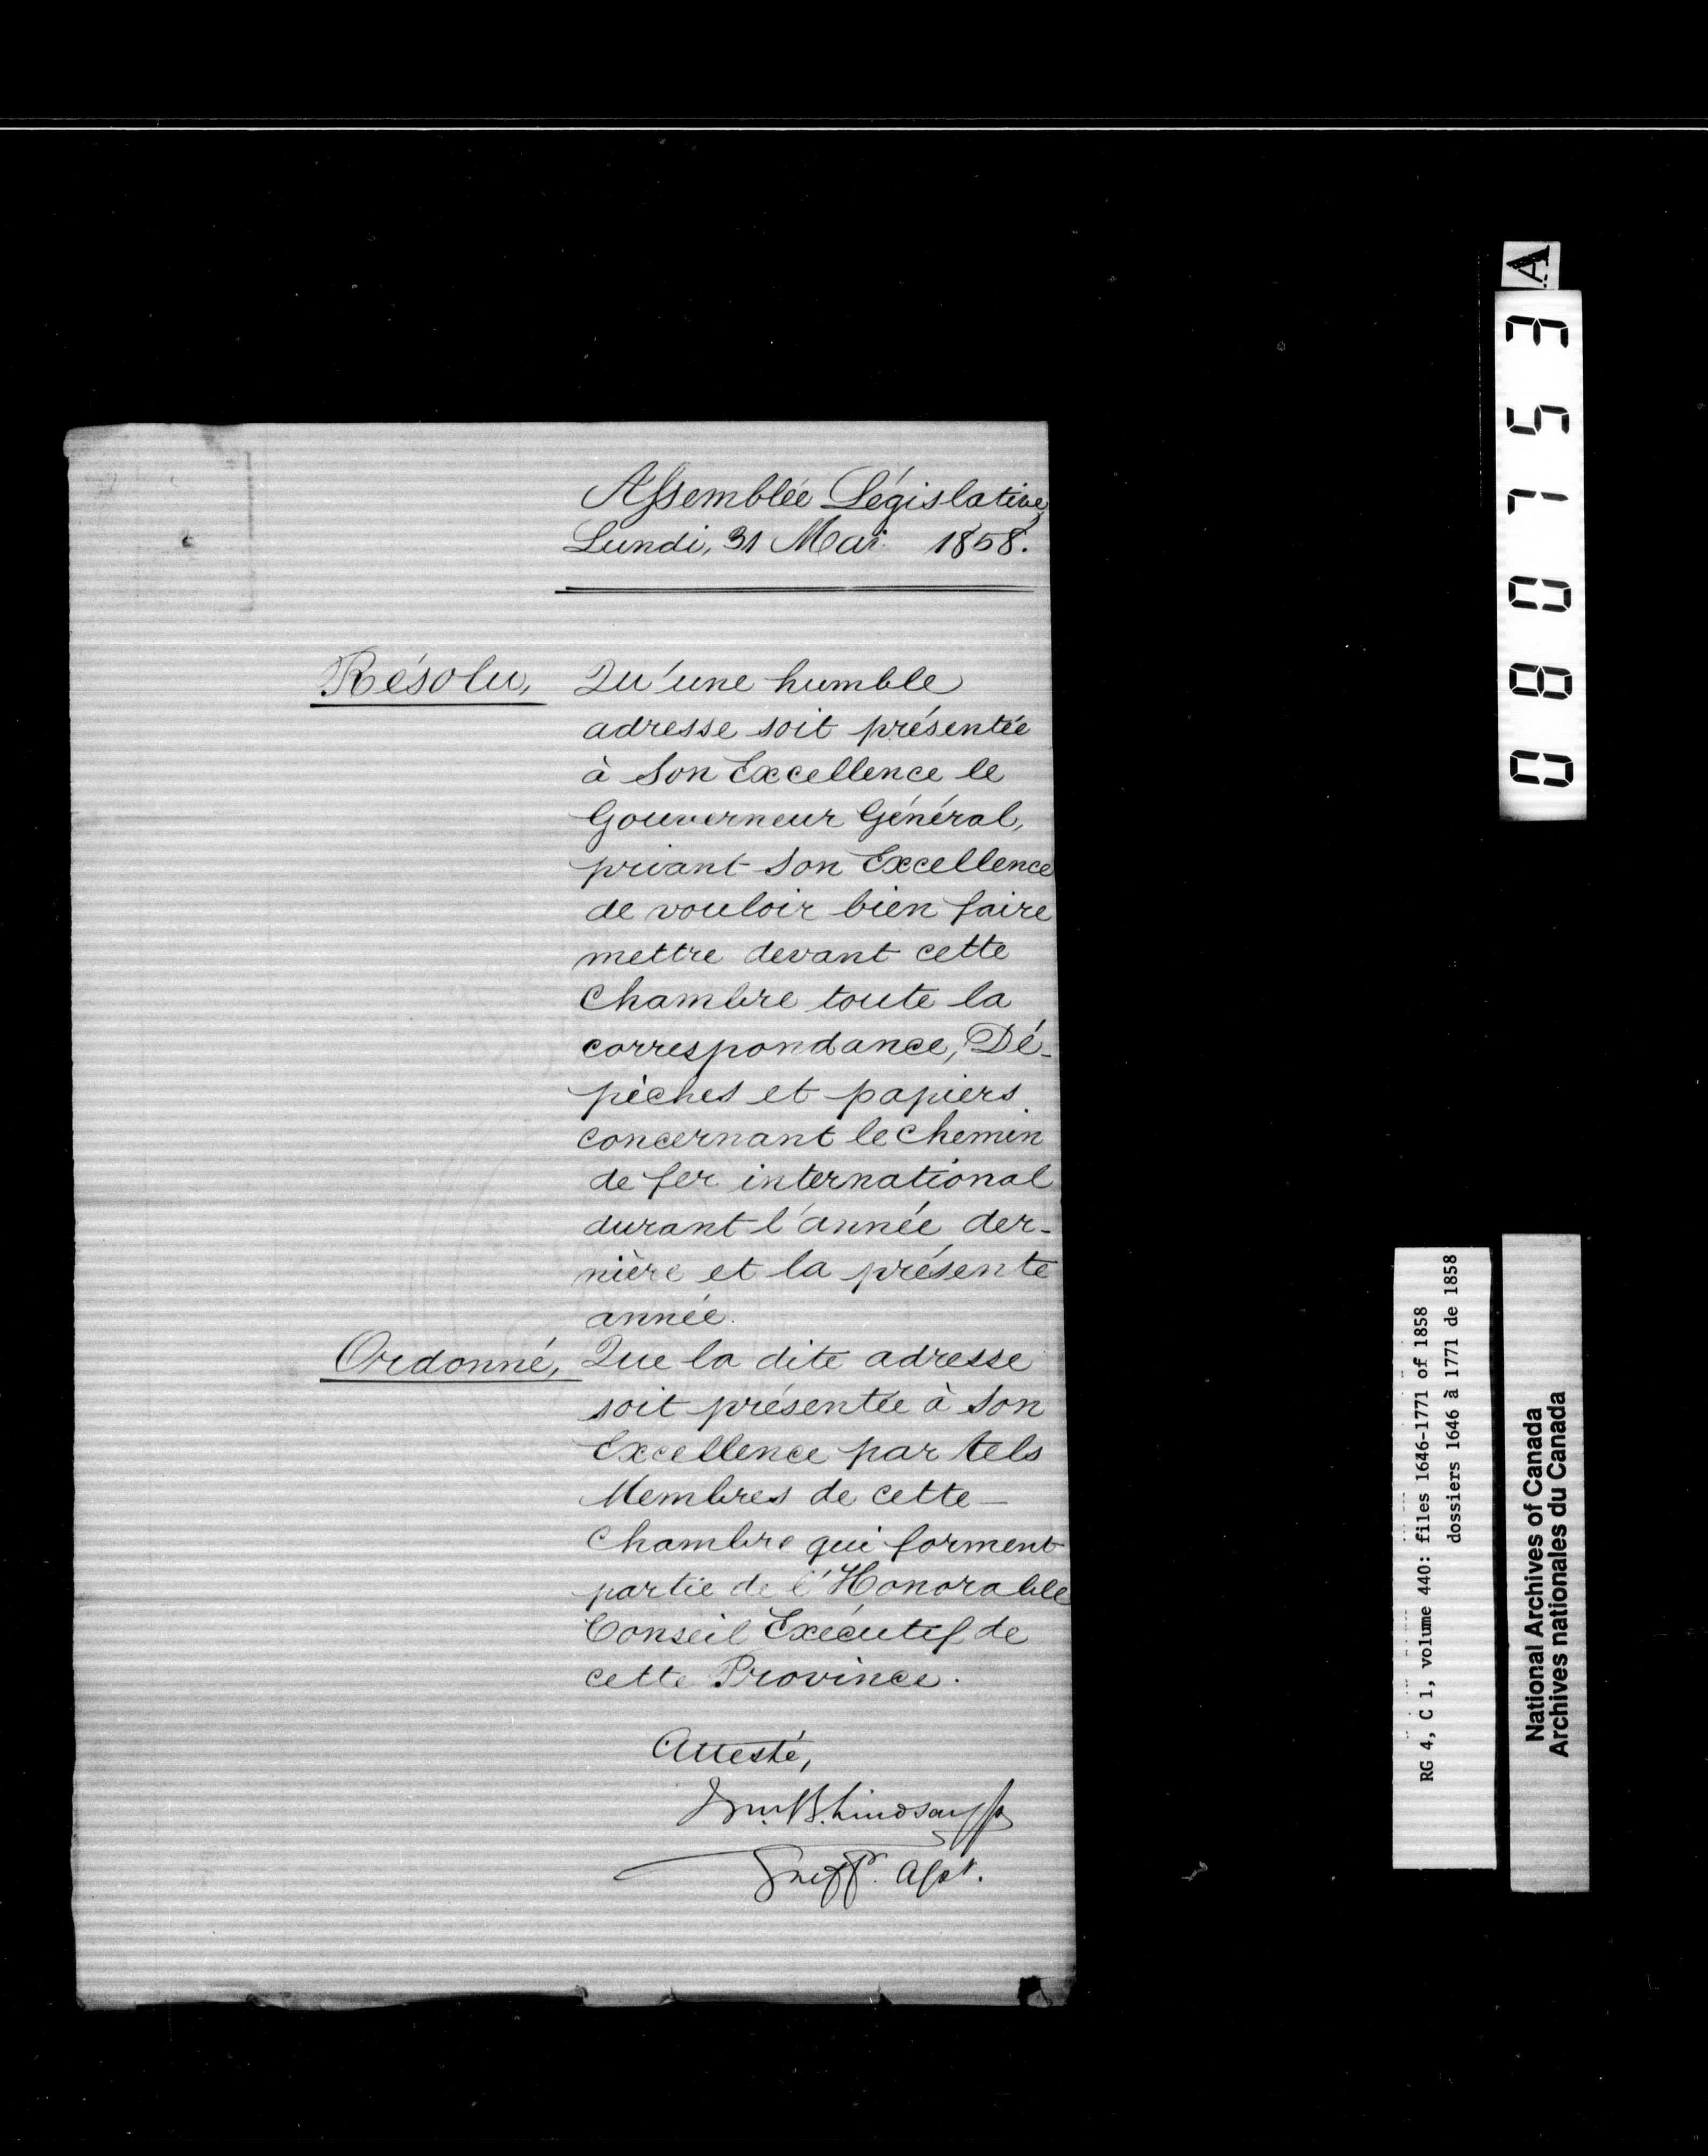 Assemblée Législative,
Lundi, 31 Mai 1858.
Résolu, Qu'une humble
adresse soit présentée
à Son Excellence le
Gouverneur Général,
priant Son Excellence
de vouloir bien faire
mettre devant cette
Chambre toute la
correspondance, Dé-
pêches et papiers
concernant le Chemin
de fer international
durant l'année der-
nière et la présente
année.
Ordonné, Que la dite adresse
soit présentée à Son
Excellence par tels
Membres de cette
Chambre qui forment
partie de l'Honorable
Conseil Exécutif de
cette Province.
Attesté,
Wm. B. Lindsay Jr
Greffr. Asst.
080753
A
RG 4, C 1, volume 440: files 1646-1771 of 1858
dossiers 1646 à 1771 de 1858
National Archives of Canada
Archives nationales du Canada